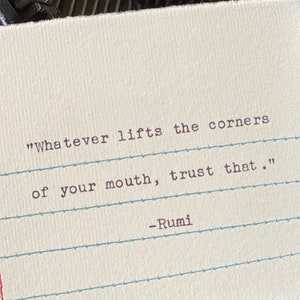 "Whatever lifts the corners
of your mouth, trust that."
-Rumi